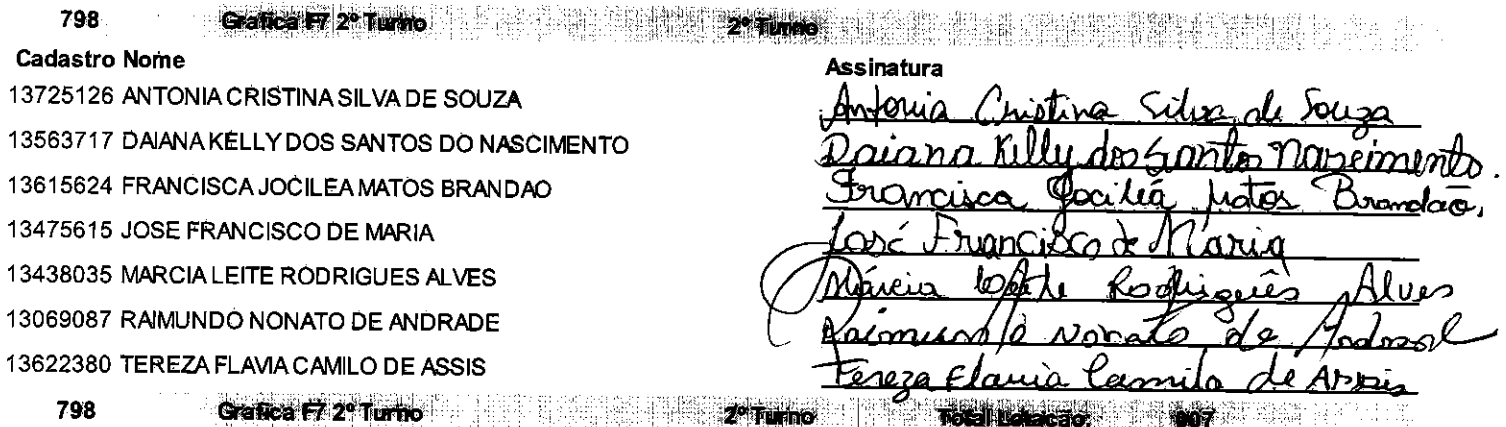 798 Grafica F7 2º Turno 2º Turno
Cadastro Nome Assinatura
13725126 ANTONIA CRISTINA SILVA DE SOUZA Antonia Cristina Silva de Souza
13563717 DAIANA KELLY DOS SANTOS DO NASCIMENTO Daiana Kelly dos Santos Nascimento.
13615624 FRANCISCA JOCILEA MATOS BRANDAO Francisca Jocileá Matos Brandão,
13475615 JOSE FRANCISCO DE MARIA José Francisco de Maria
13438035 MARCIA LEITE RODRIGUES ALVES Márcia Leite Rodrigues Alves
13069087 RAIMUNDO NONATO DE ANDRADE Raimundo Nonato de
13622380 TEREZA FLAVIA CAMILO DE ASSIS Tereza Flavia Camilo de Assis
798 Grafica F7 2º Turno 2º Turno Total Lotacão: 007